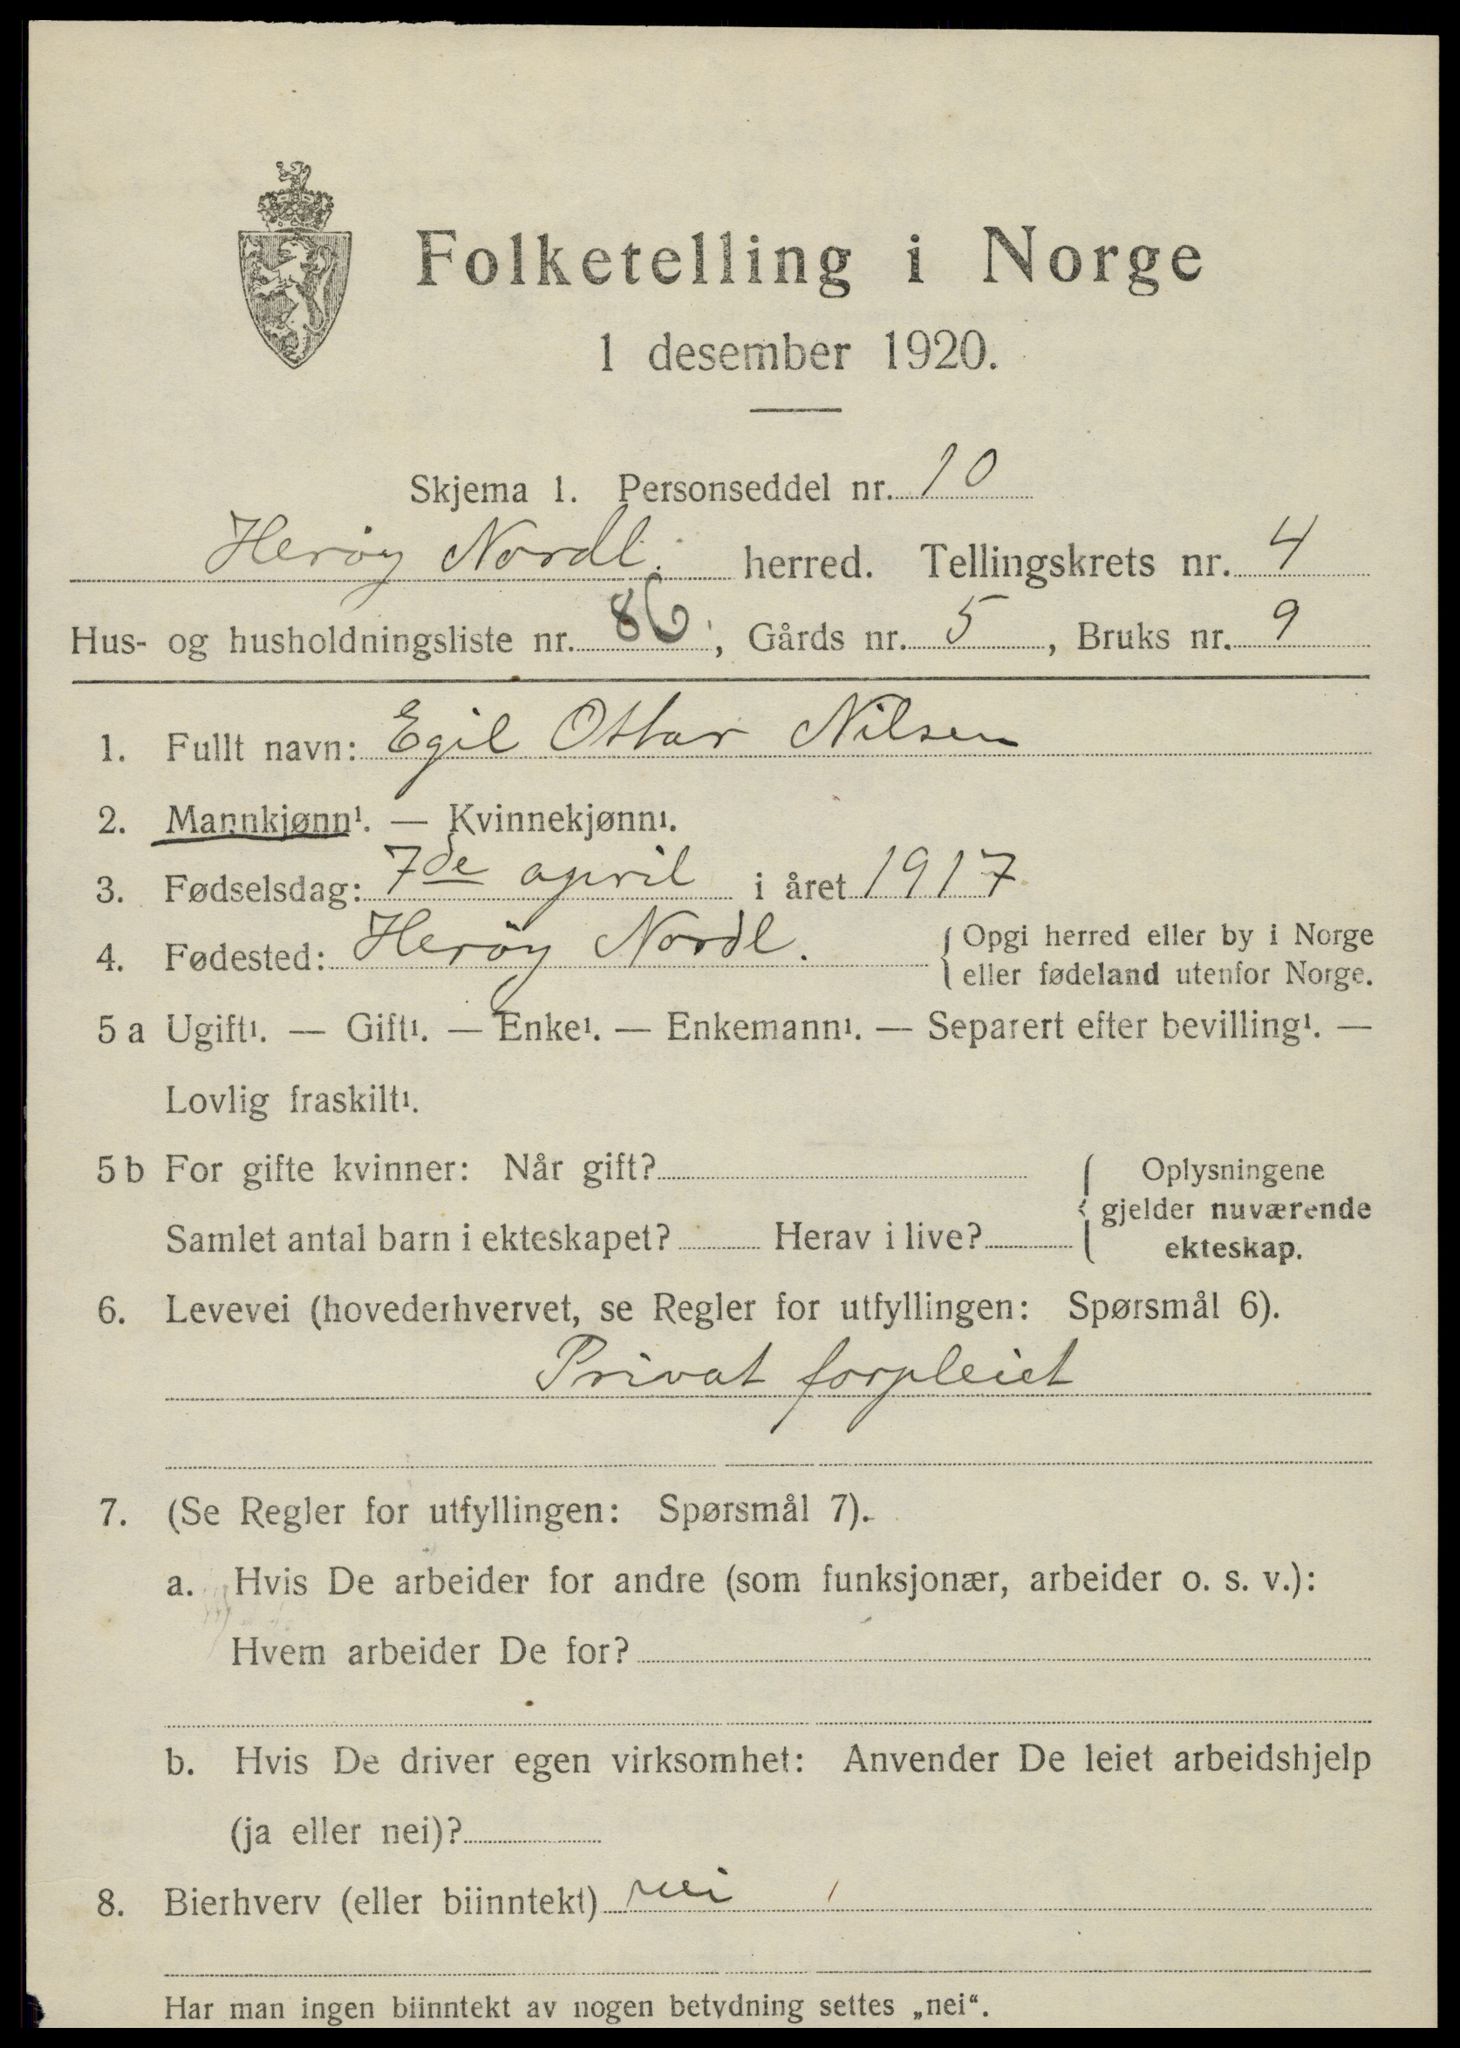 Folketelling i Norge
1 desember 1920.
Skjema 1. Personseddel nr. 10
Herøy Nordl. herred. Tellingskrets nr. 4
Hus- og husholdningsliste nr. 86, Gårds nr. 5, Bruks nr. 9
1. Fullt navn: Egil Ottar Nilsen
2. Mannkjønn¹. — Kvinnekjønn¹.
3. Fødselsdag: 7de april i året 1917
4. Fødested: Herøy Nordl. { Opgi herred eller by i Norge
eller fødeland utenfor Norge.
5 a Ugift¹. — Gift¹. — Enke¹. — Enkemann¹. — Separert efter bevilling¹. —
Lovlig fraskilt¹.
5 b For gifte kvinner: Når gift? { Oplysningene
gjelder nuværende
Samlet antal barn i ekteskapet? Herav i live?
ekteskap.
6. Levevei (hovederhvervet, se Regler for utfyllingen: Spørsmål 6).
Privat forpleiet
7. (Se Regler for utfyllingen: Spørsmål 7).
a. Hvis De arbeider for andre (som funksjonær, arbeider o. s. v.):
Hvem arbeider De for?
b. Hvis De driver egen virksomhet: Anvender De leiet arbeidshjelp
(ja eller nei)?
8. Bierhverv (eller biinntekt) nei
Har man ingen biinntekt av nogen betydning settes „nei“.